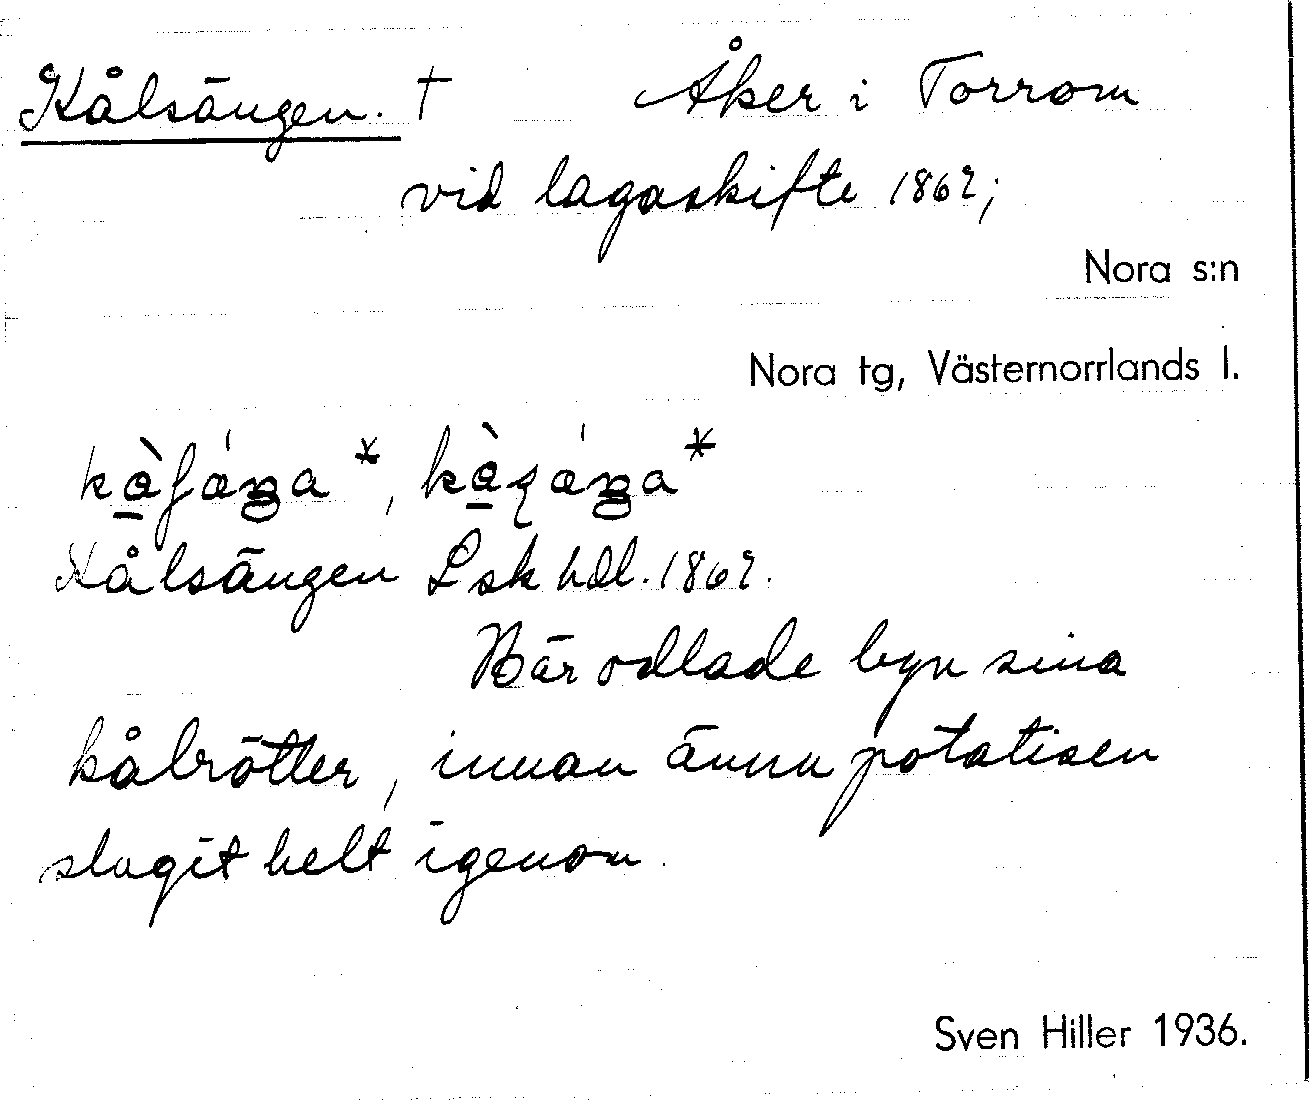 Kålsängen. † Åker i Torrom
vid lagaskifte 1862;
Nora s:n
Nora tg, Västernorrlands l.
Kålsängen Lsk hdl. 1862.
Här odlade byn sina
kålrötter, innan ännu potatisen
slagit helt igenom.
Sven Hiller 1936.